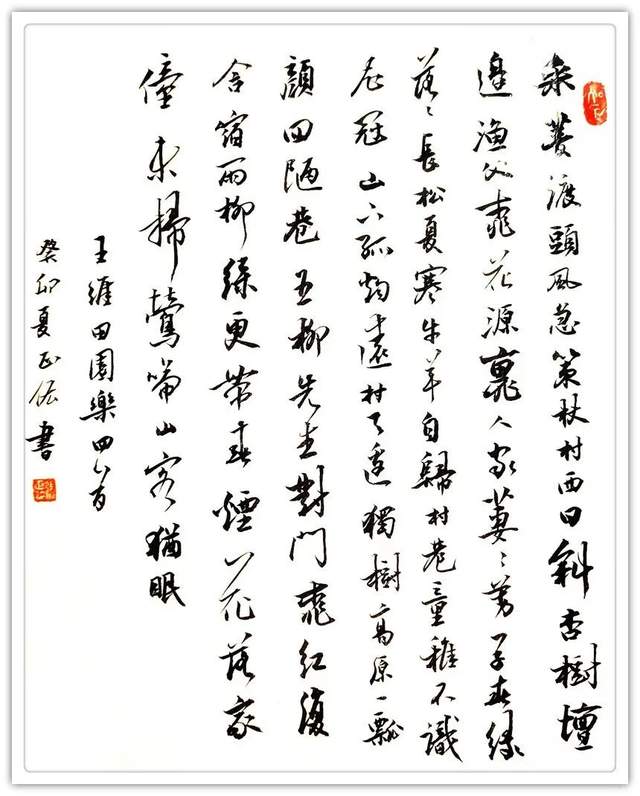 采菱渡頭風急策杖村西日斜杏樹壇
邊漁父桃花源裏人家萋〻芳草春緑
落〻長松夏寒牛羊自歸村巷童稚不識
衣冠山下孤煙遠村天邊獨樹高原一瓢
顔回陋巷五柳先生對門桃紅復
含宿雨柳緑更帶春煙花落家
僮未掃鶯啼山客猶眠
王維田園樂四首
癸卯夏正書